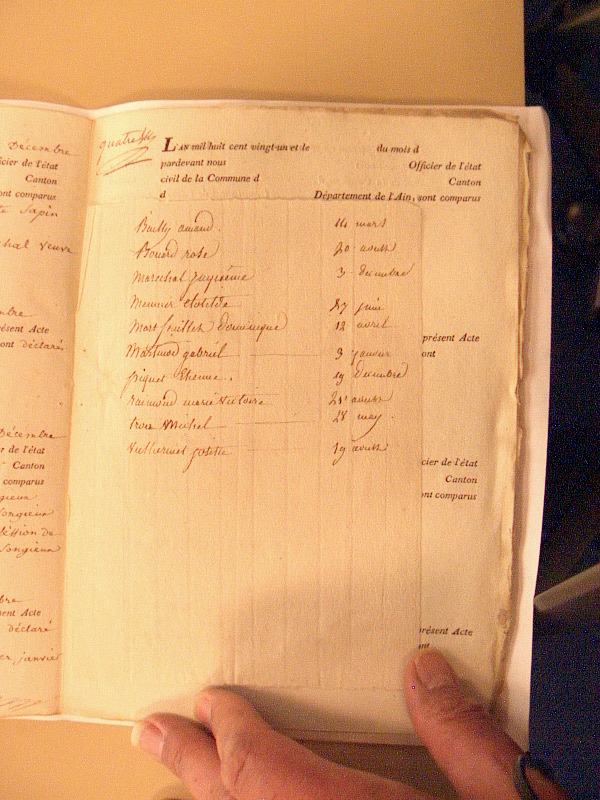 Décembre
cier de l'état
Canton
ont comparus
Sapin
chal Veuve
mbre
ésent Acte
ont déclaré
Décembre
er de l'état
Canton
comparus
Songieux
Songieux
bre
ent Acte
déclaré
er janvier
L'AN mil huit cent vingt-un et le du mois d
pardevant nous Officier de l'état
civil de la Commune d Canton
d Département de l'Ain, sont comparus
Bailly amand. 14 mars
Bouard rose 20 aoust
Marechal jaqueme 3 decembre
Meunier Clotilde 27 juin
Mort feuillet Dominique 12 avril
Martinod gabriel 3 janvier
piquet Etienne. 19 decembre
raimond marie victoire 21 aoust
trois Michel 28 may.
Vuillermet josette 19 aoust
présent Acte
ont
cier de l'état
Canton
ont comparus
résent Acte
nt